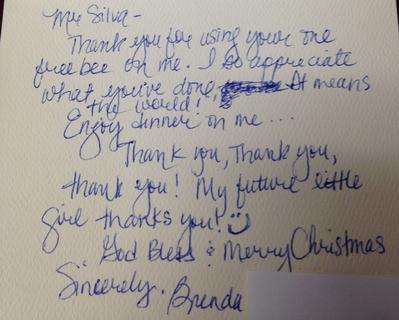 Mr Silva -
Thank you for using your one
free bee on me. I so appreciate
what you've done, It means
the world!
Enjoy dinner on me ....
Thank you, Thank you,
thank you! My future little
girl thanks you!
God Bless & Merry Christmas
Sincerely, Brenda